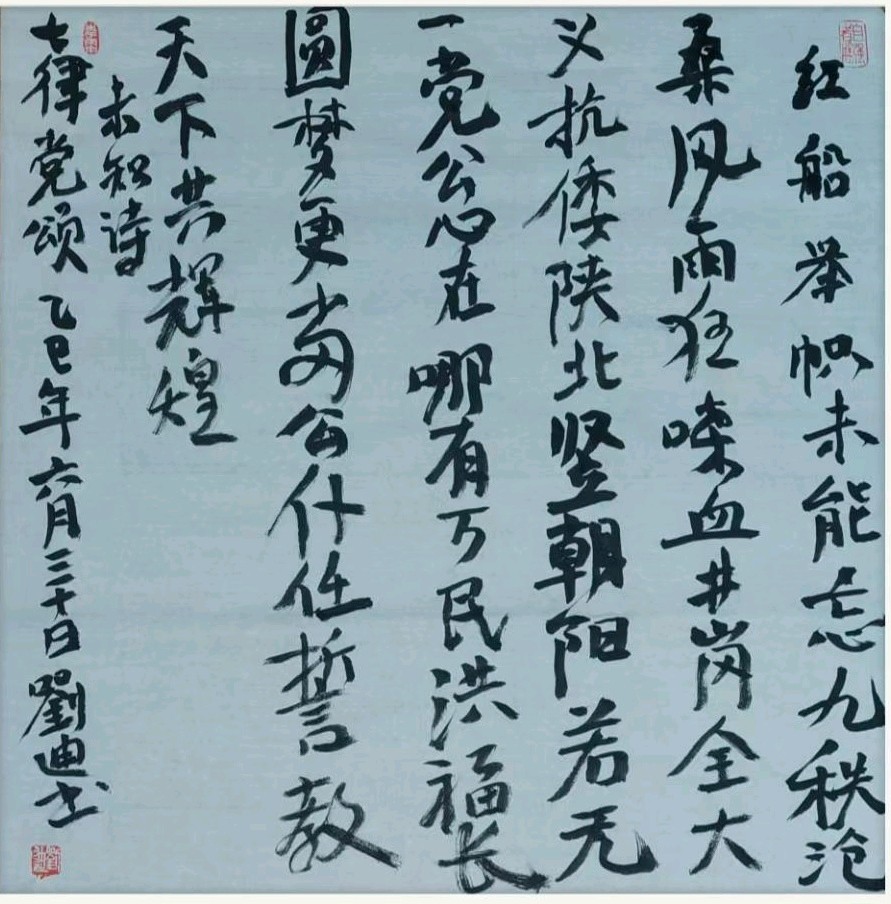 红船举帜未能忘九秩沧
桑风雨狂喋血井岗全大
义抗倭陕北竖朝阳若无
一党公心在哪有万民洪福长
圆梦更当公仆任誓教
天下共辉煌
未知诗
七律党颂乙巳年六月三十日劉迪书